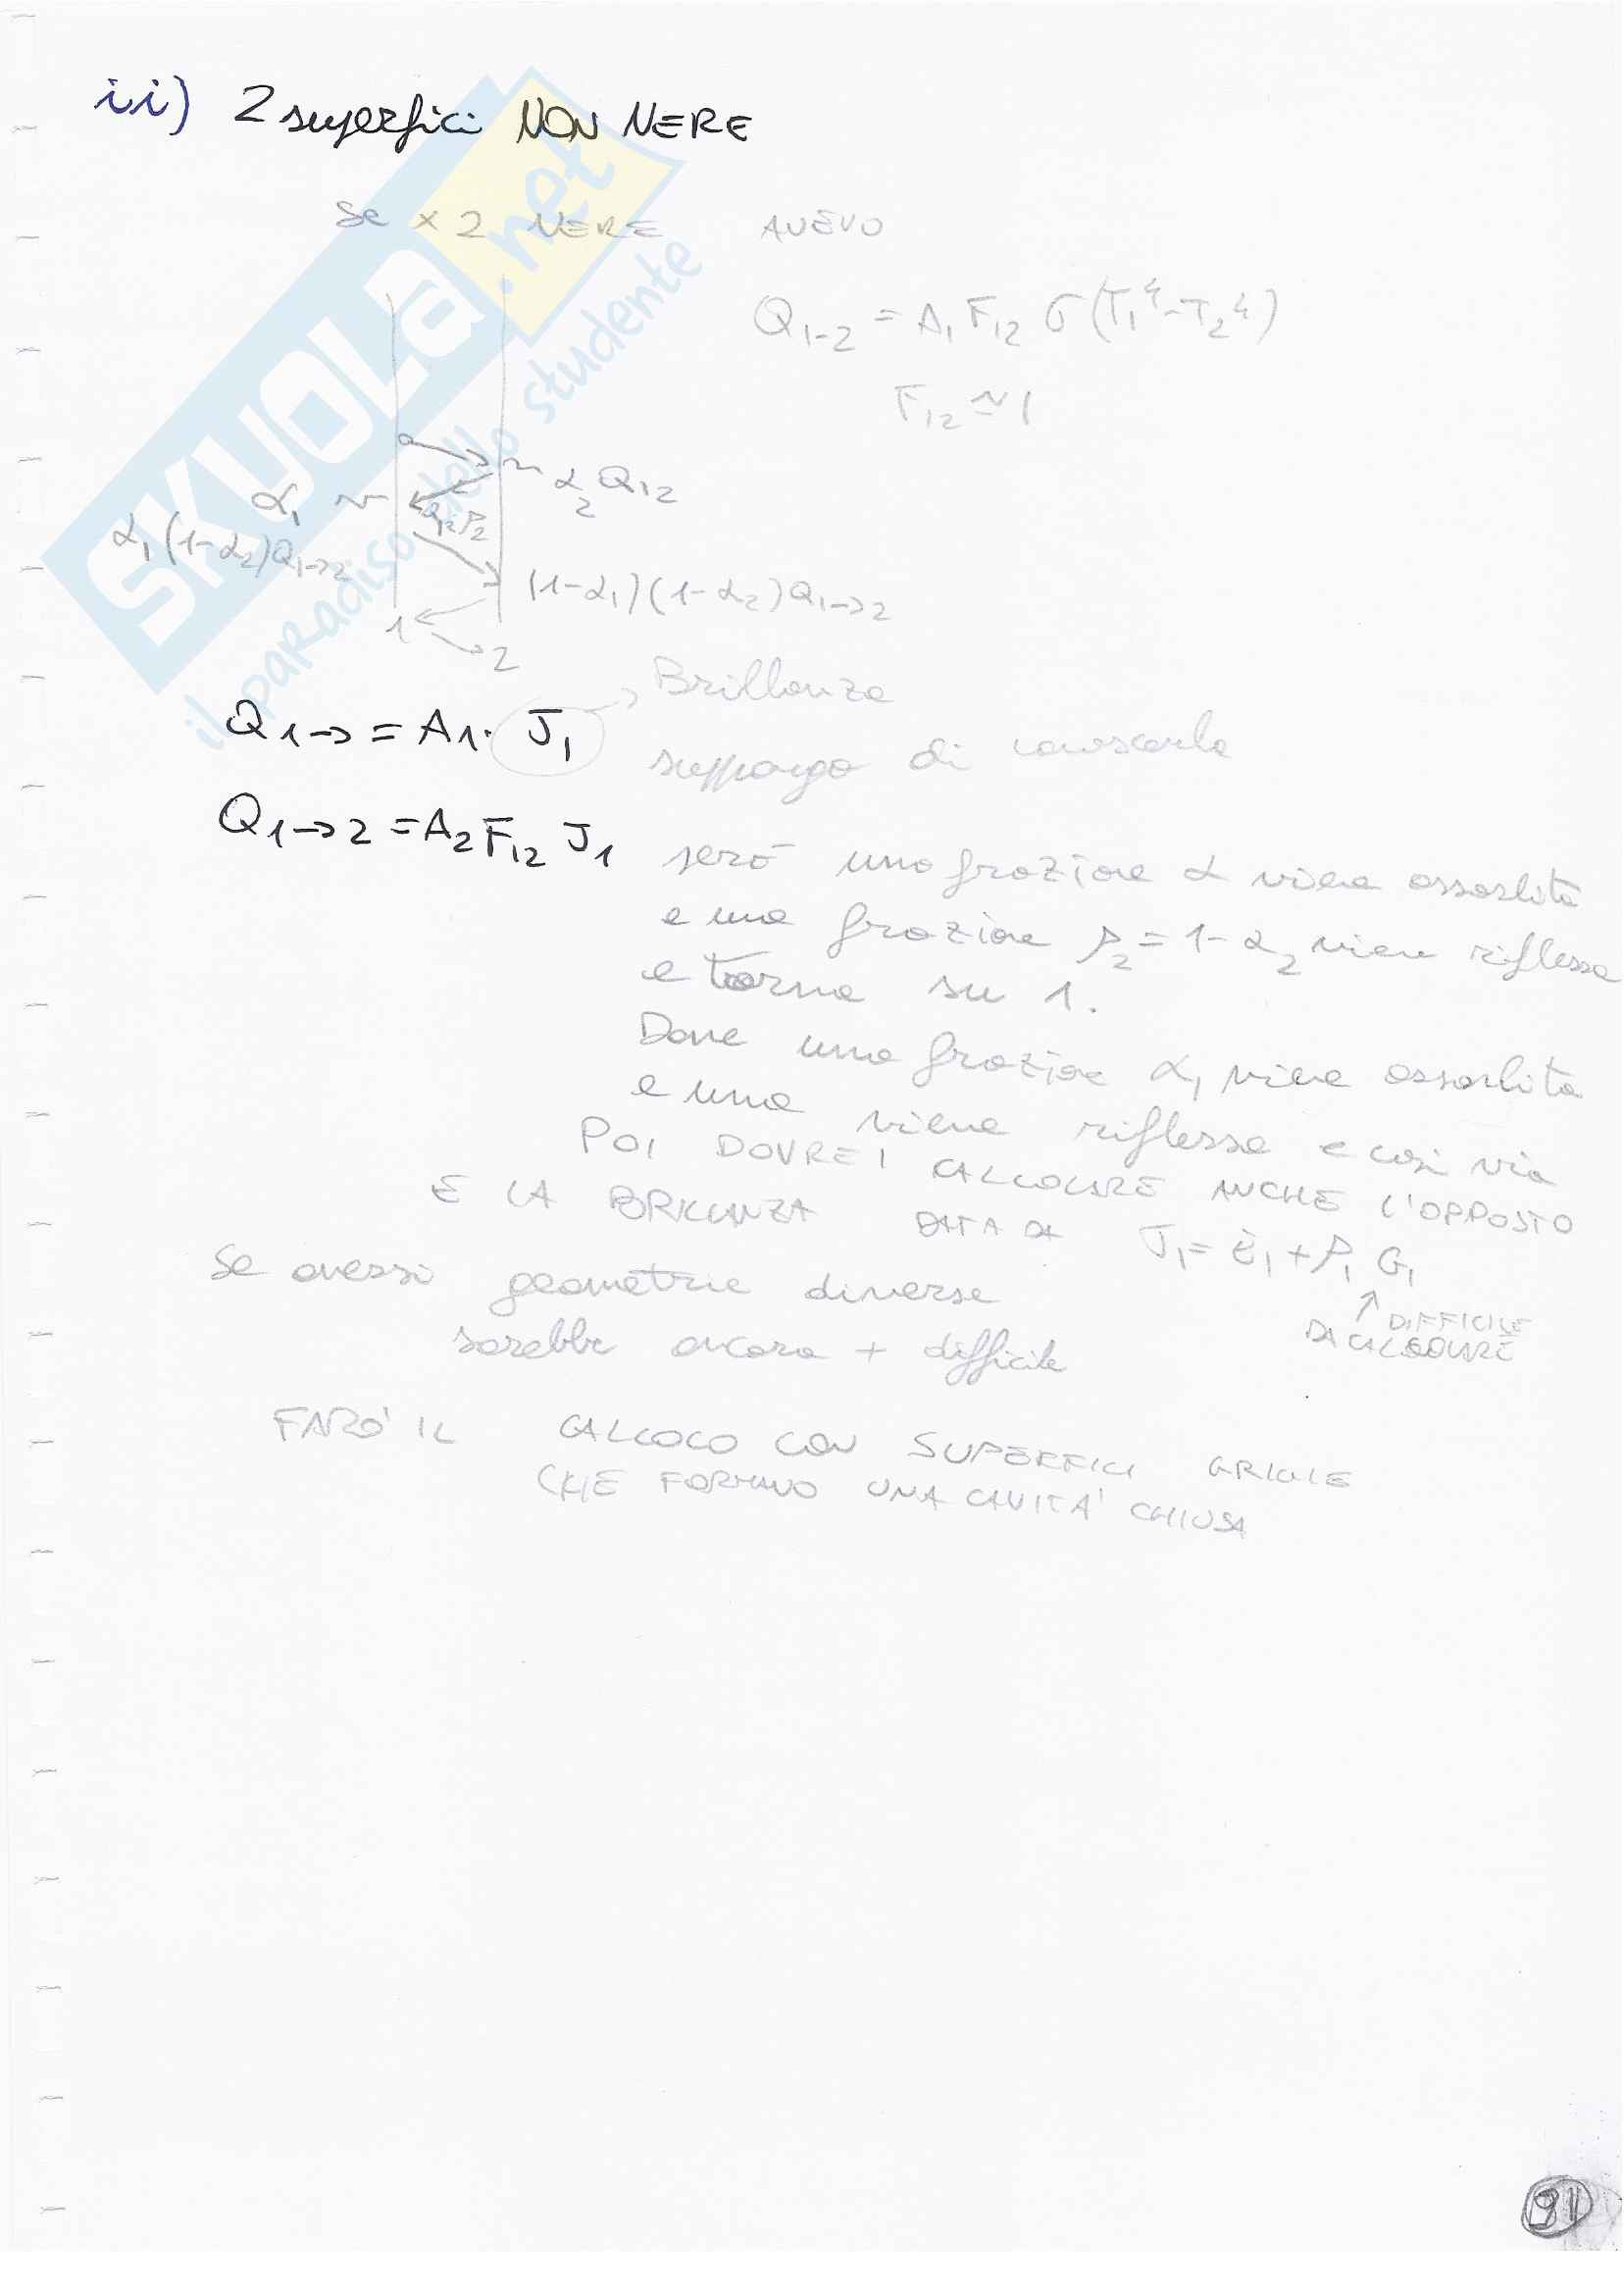 ii) 2 superfici NON NERE
Se x 2 NERE AVEVO
Q₁₋₂ = A₁ F₁₂ σ (T₁⁴ - T₂⁴)
F₁₂ ≃ 1
α₂ Q₁₂
α₁
Q₁₂ρ₂
α₁ (1-α₂) Q₁→₂
(1-α₁) (1-α₂) Q₁→₂
1
2
Brillanza
Q₁→ = A₁ · J₁ suppongo di conoscerla
Q₁→₂ = A₂ F₁₂ J₁ però una frazione α viene assorbita
e una frazione ρ₂ = 1-α₂ viene riflessa
e torna su 1.
Dove una frazione α₁ viene assorbita
e una viene riflessa e così via
POI DOVREI CALCOLARE ANCHE L'OPPOSTO
E LA BRILLANZA DATA DA J₁ = E₁ + ρ₁ G₁
↑ DIFFICILE
DA CALCOLARE
Se avessi geometrie diverse
sarebbe ancora + difficile
FARO' IL CALCOLO CON SUPERFICI GRIGIE
CHE FORMANO UNA CAVITA' CHIUSA
SKUOLA.net
il paradiso dello studente
91